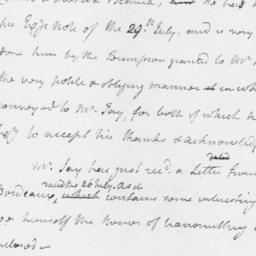 his Exy's Note of the 29th July, and is very
done him by the Permission granted to Mr
the very polite & obliging manner in wh
conveyed to Mr. Jay, for both of which h
Exy to accept his thanks & acknowledg
Mr. Jay has just recd. a Letter from
dated
said the 26 July. as it
Bordeaux, which contains some interesting
himself the Honor of transmitting
enclosed